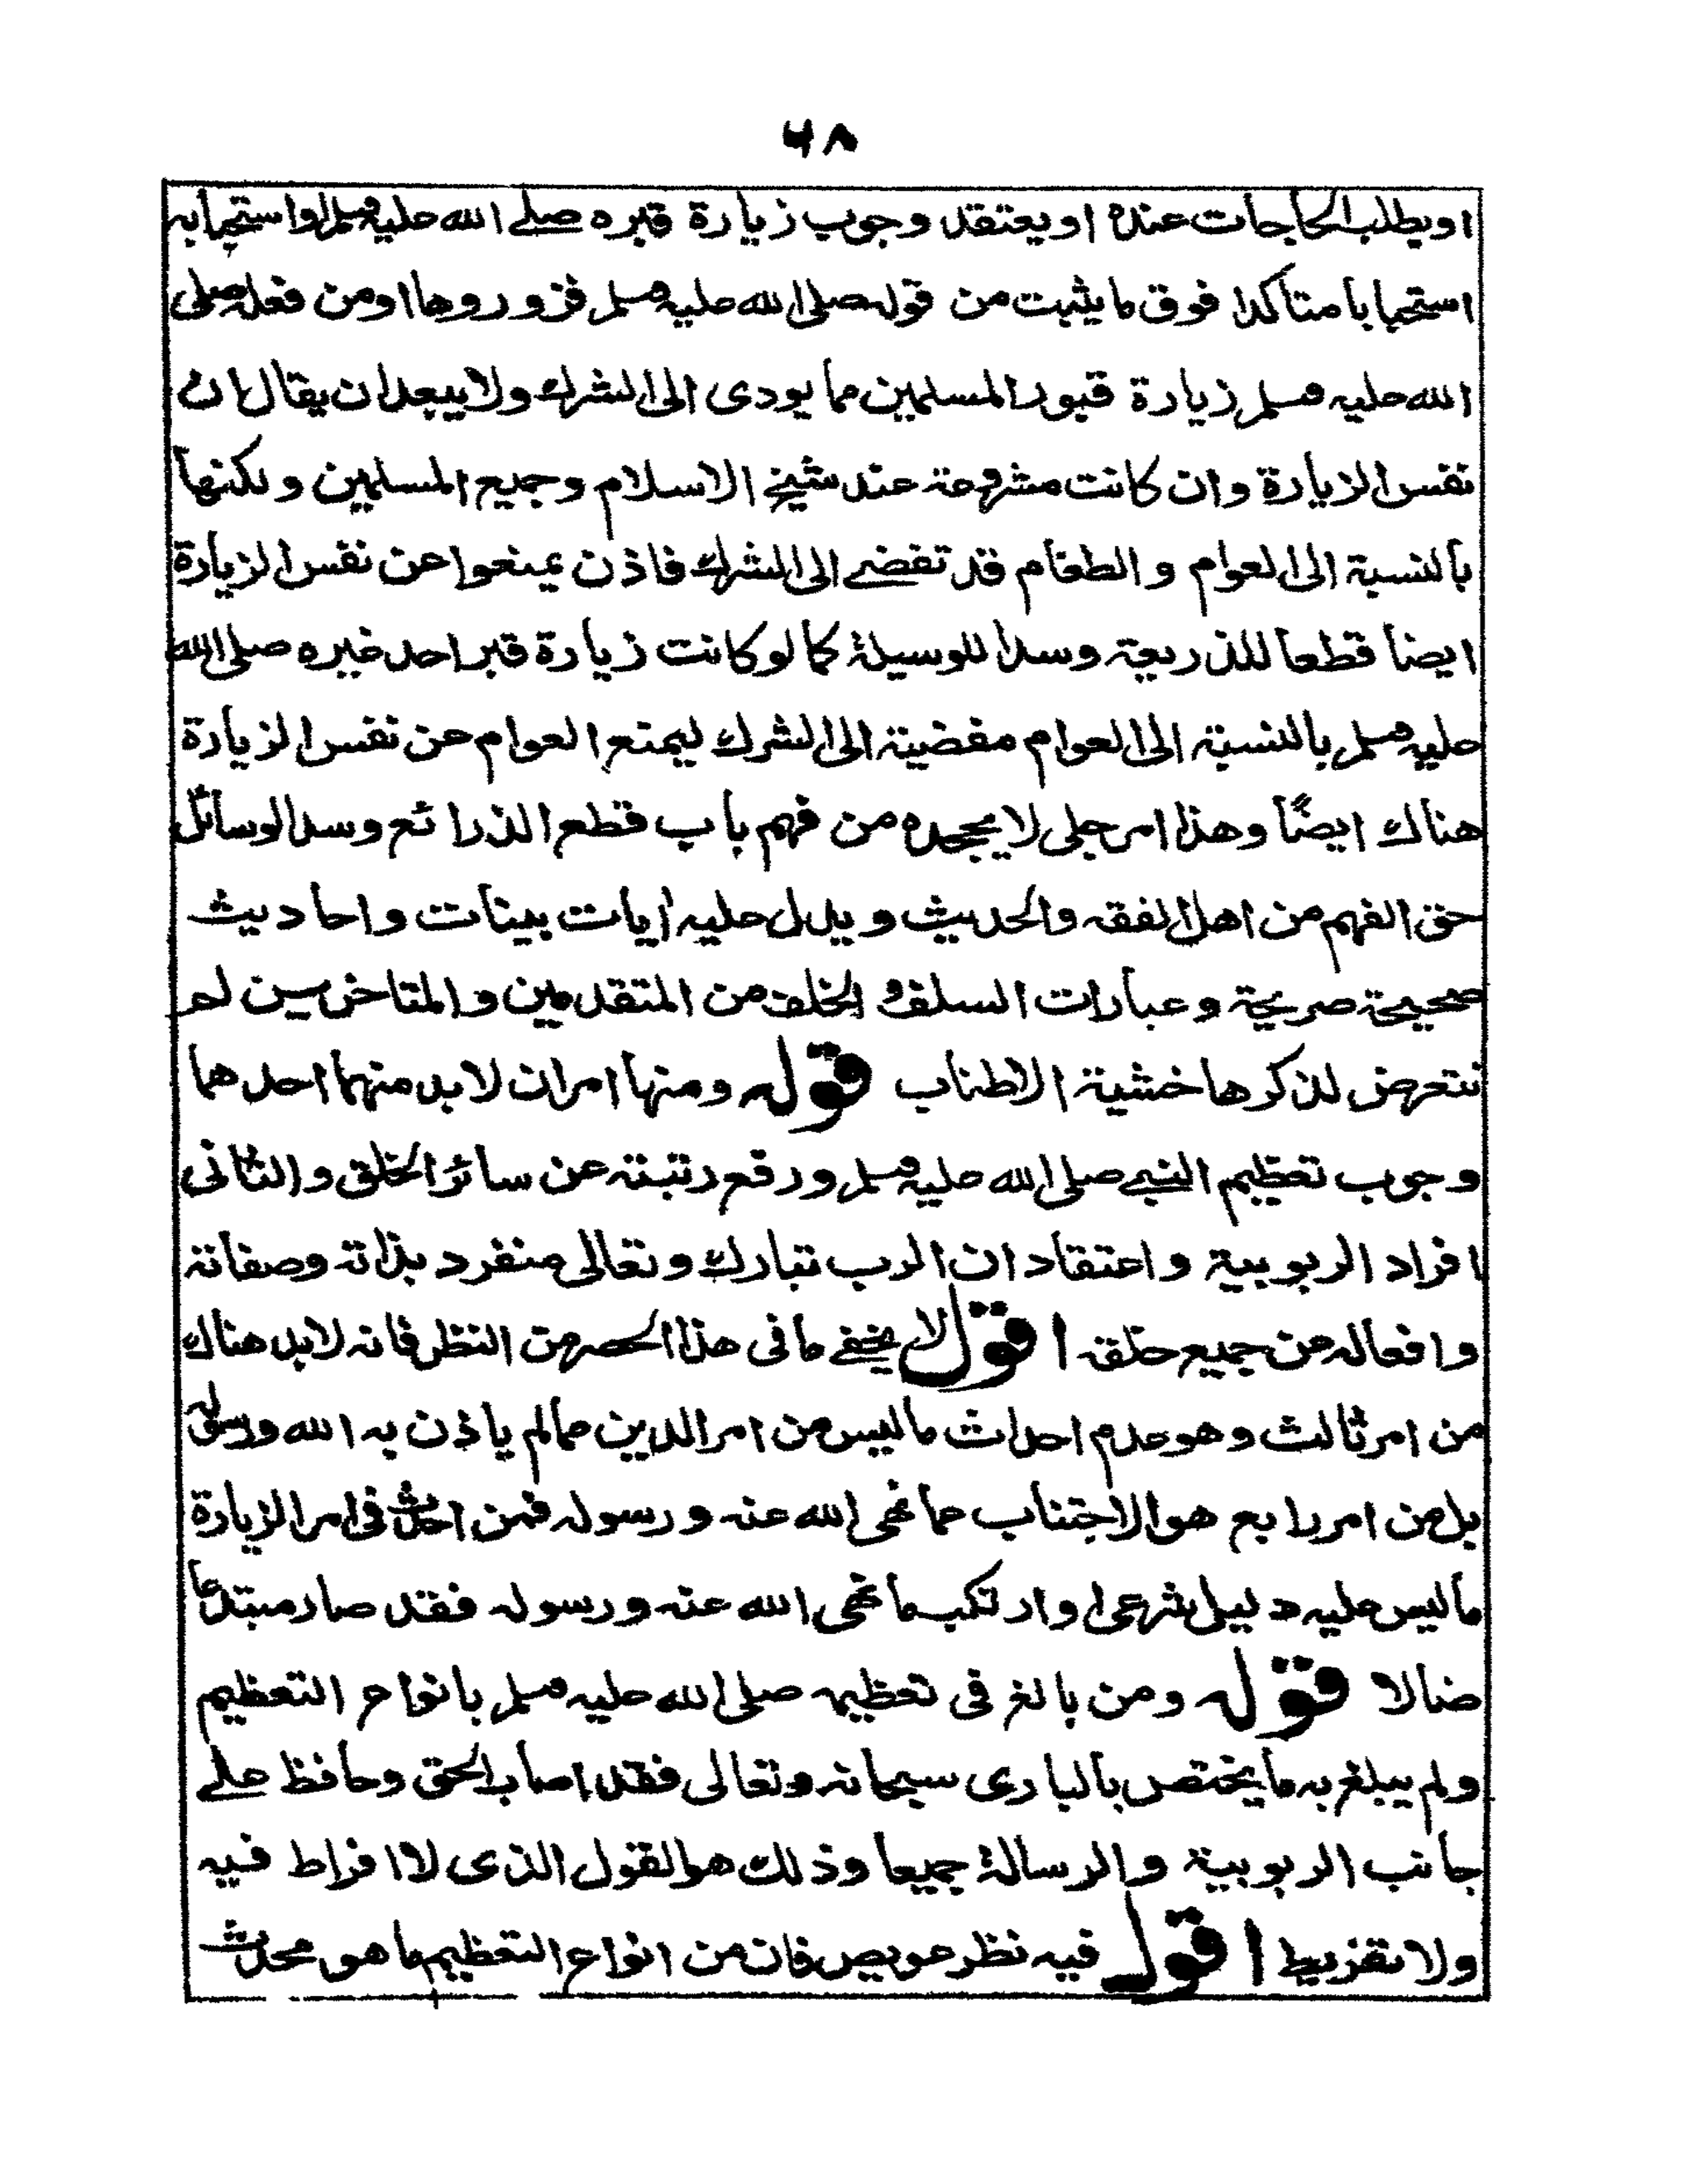 ٤٨
او يطلب الحاجات عنده او يعتقد وجوب زيارة قبره صلے الله عليه وسلم او استحبابه
استحبابا متاكدا فوق ما يثبت من قوله صلى الله عليه وسلم فزوروها او من فعله صلى
الله عليه وسلم زيارة قبور المسلمين مما يودى الى الشرك ولا يبعد ان يقال ان
نفس الزيارة وان كانت مشروعة عند شيخ الاسلام وجميع المسلمين ولكنها
بالنسبة الى العوام والطغام قد تفضے الى الشرك فاذن يمنعوا عن نفس الزيارة
ايضا قطعا للذريعة وسدا للوسيلة كما لو كانت زيارة قبر احد غيره صلى الله
عليه وسلم بالنسبة الى العوام مفضية الى الشرك ليمتع العوام عن نفس الزيارة
هناك ايضًا وهذا امر جلى لا يجحده من فهم باب قطع الذرائع وسد الوسائل
حق الفهم من اهل الفقه والحديث ويدل عليه ايات بينات واحاديث
صحيحة صريحة وعبارات السلف والخلف من المتقدمين والمتاخرين لم
نتعرض لذكرها خشية الاطناب قوله ومنها امران لا بد منهما احدهما
وجوب تعظيم النبے صلى الله عليه وسلم ورفع رتبته عن سائر الخلق والثانى
افراد الربوبية واعتقاد ان الرب تبارك وتعالى منفرد بذاته وصفاته
وافعاله من جميع خلقه اقول لا يخفے ما فى هذا الحصر من النظر فانه لا بد هناك
من امر ثالث وهو عدم احداث ما ليس من امر الدين مما لم ياذن به الله ورسوله
بل من امر رابع هو الاجتناب عما نهى الله عنه ورسوله فمن احدث فى امر الزيارة
ما ليس عليه دليل شرعى او ارتكب ما نهى الله عنه ورسوله فقد صار مبتدعا
ضالا قوله ومن بالغ فى تعظيمه صلى الله عليه وسلم بانواع التعظيم
ولم يبلغ به ما يختص بالبارى سبحانه وتعالى فقد اصاب الحق وحافظ علے
جانب الربوبية والرسالة جميعا وذلك هو القول الذى لا افراط فيه
ولا تفريط اقول فيه نظر عويص فان من انواع التعظيم ما هو محدث